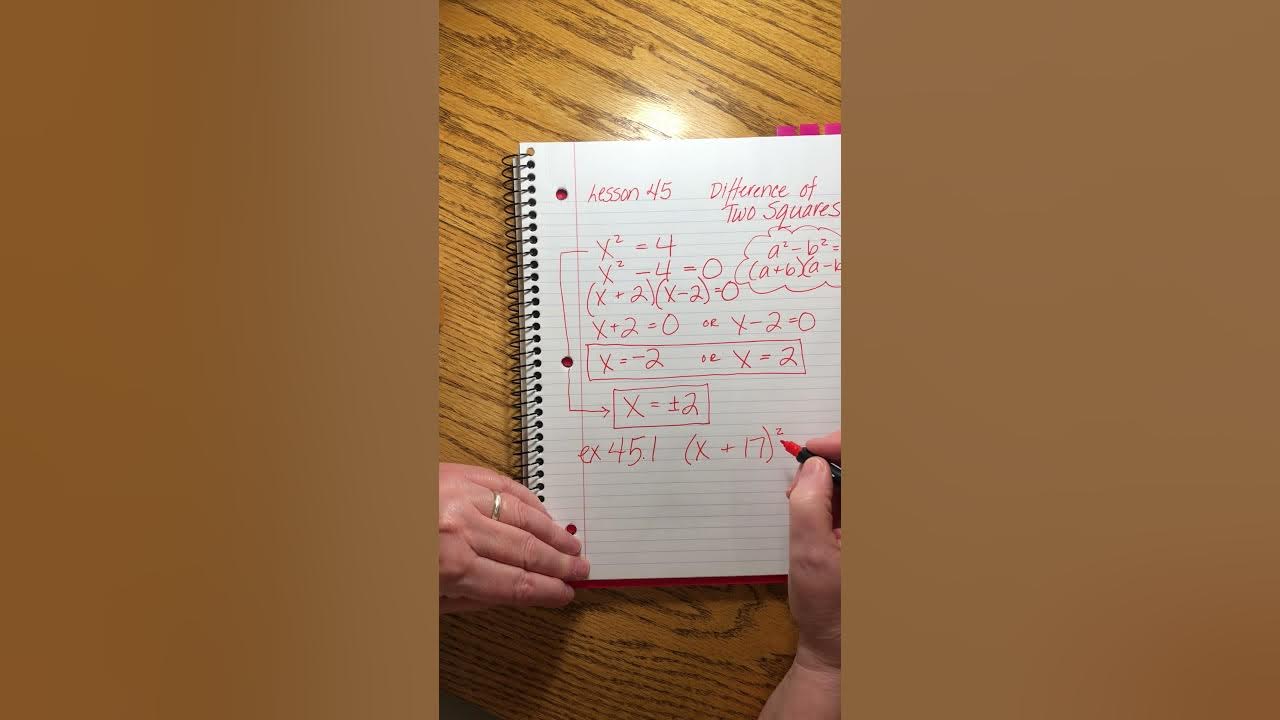 Lesson 45 Difference of
Two Squares
x² = 4
a² - b² =
x² - 4 = 0
(a+b)(a-b
(x + 2)(x-2)=0
x+2=0 or x-2=0
x=-2 or x=2
x=±2
ex 45.1 (x + 17)²